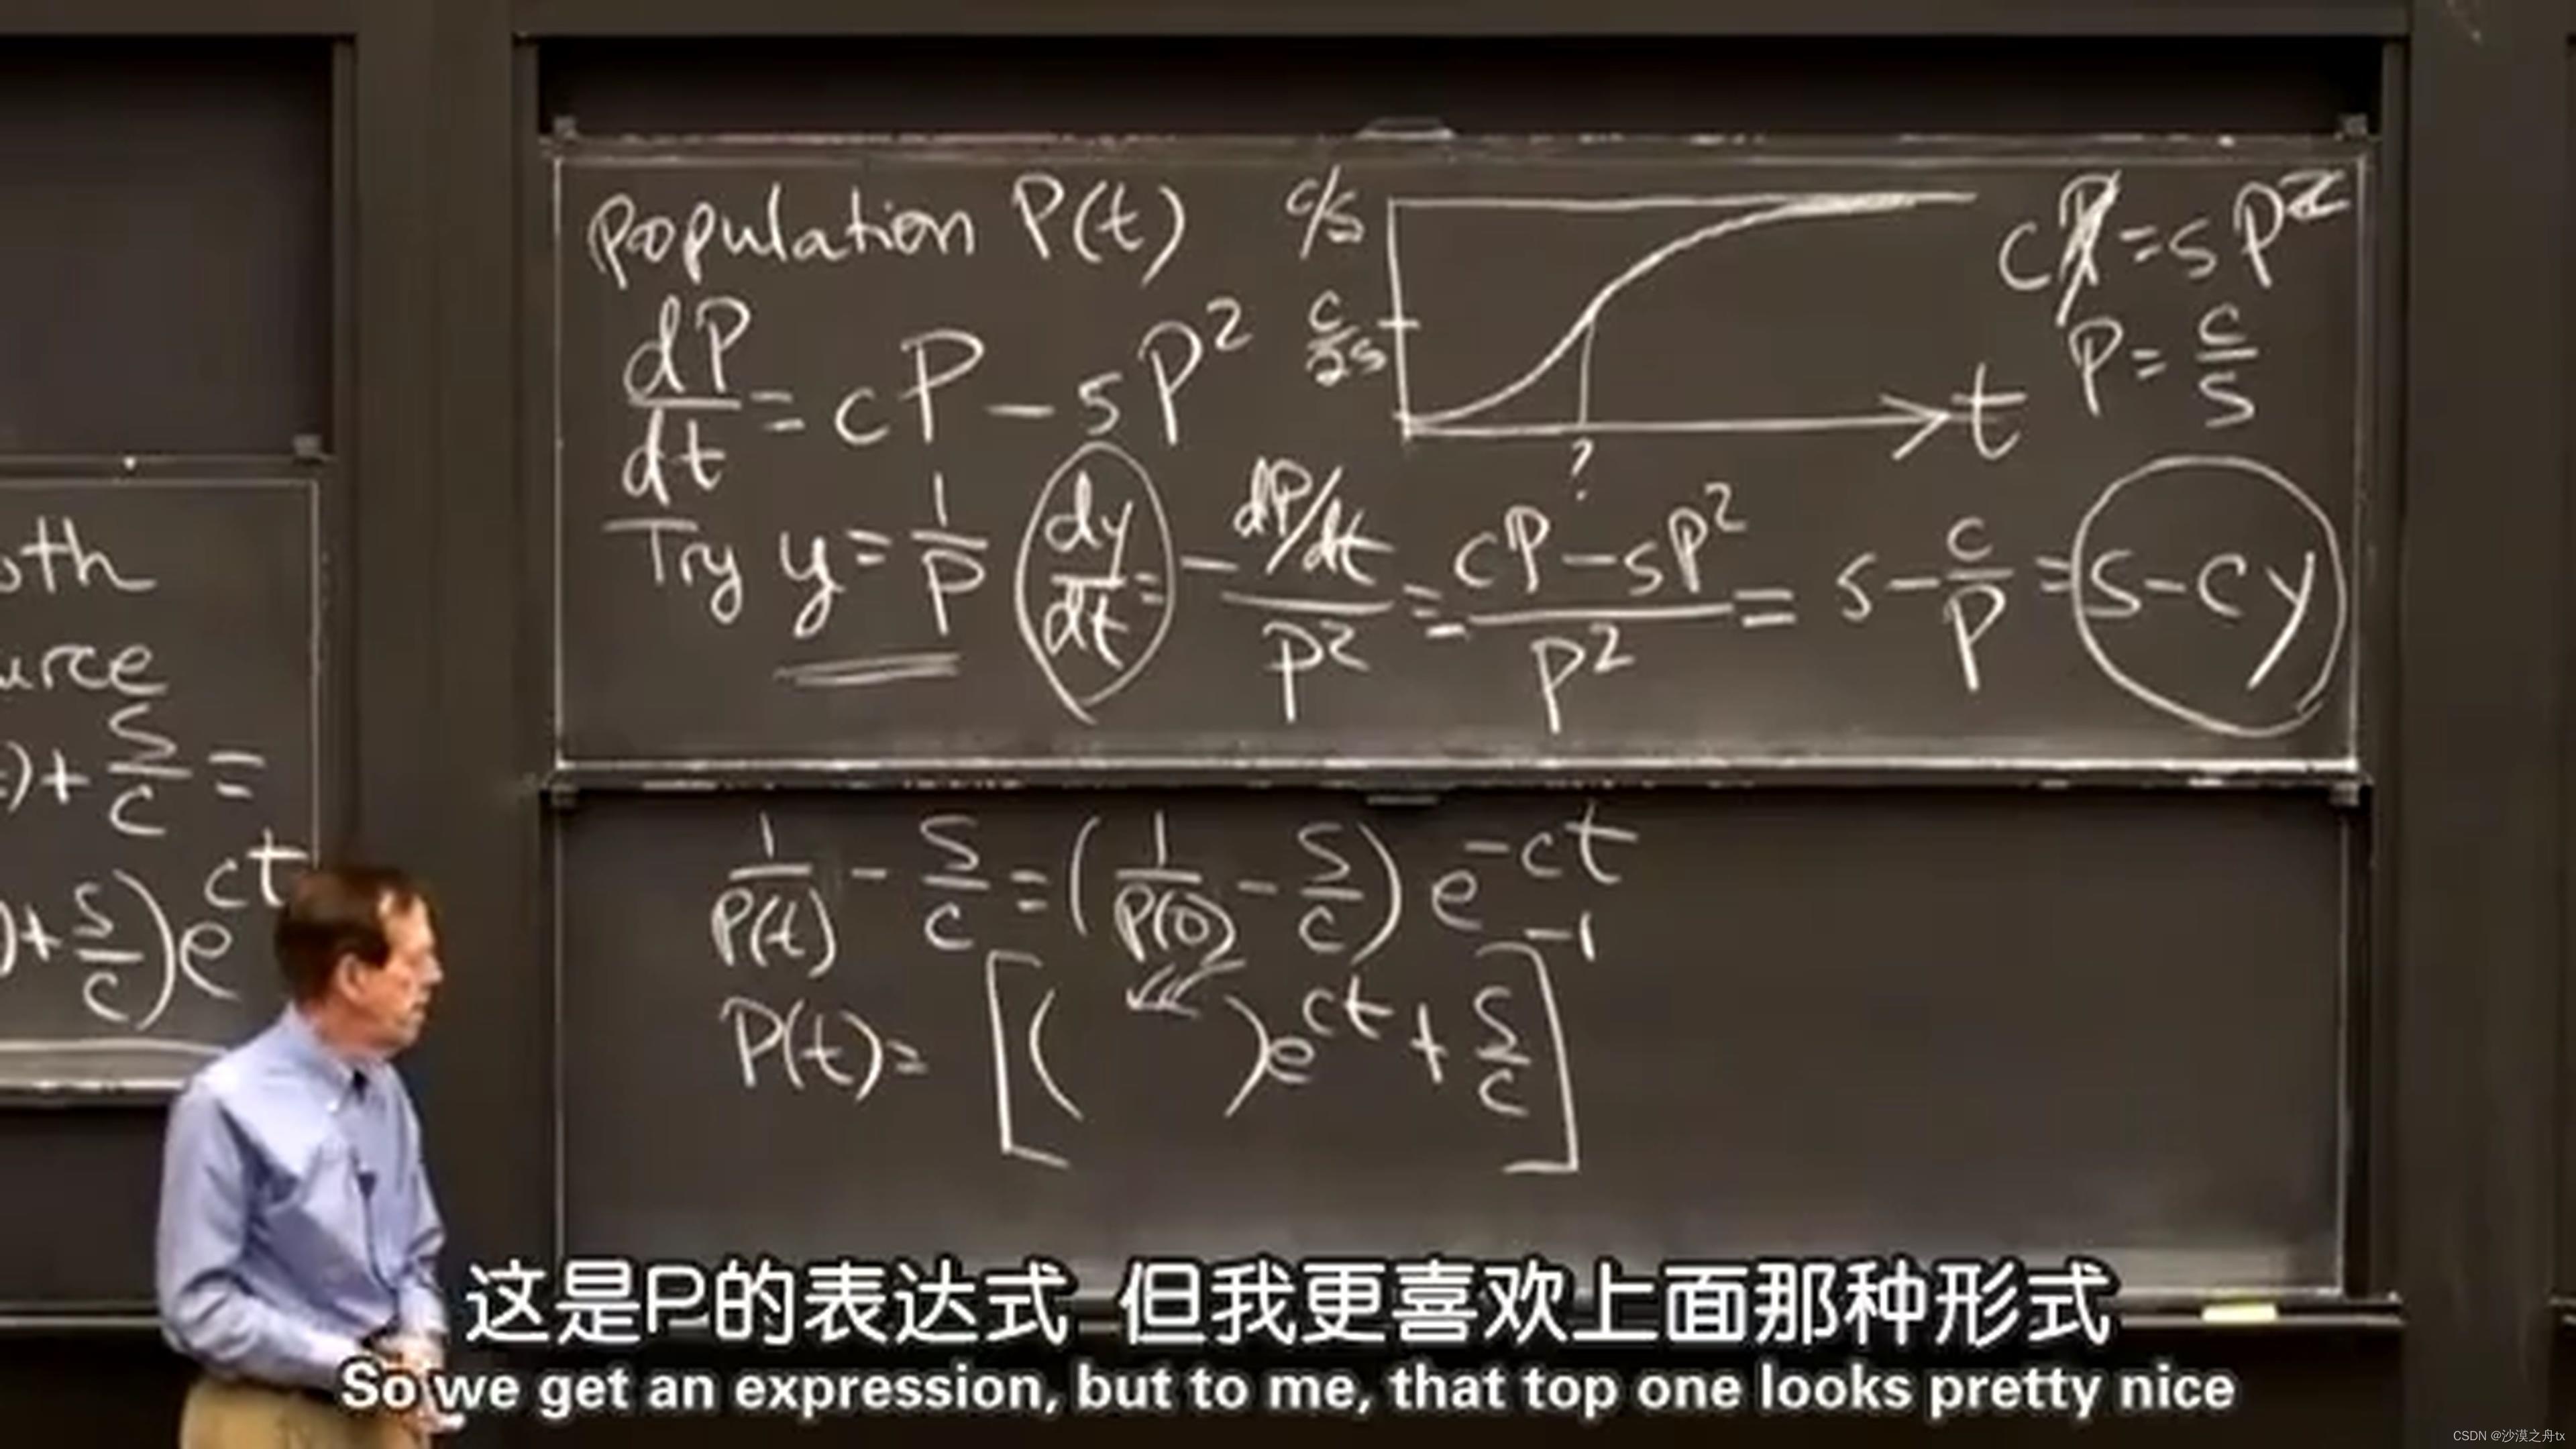 population P(t)
dP/dt = cP - sP²
c/s
c/2s
?
t
cP = sP²
P = c/s
Try y = 1/P dy/dt = - dP/dt / P² = cP - sP² / P² = s - c/P = s - cy
oth
urce
)+ s/c =
)+ s/c) e^ct
1/P(t) - s/c = (1/P(0) - s/c) e^-ct
P(t) = [( )e^ct + s/c]^-1
这是P的表达式 但我更喜欢上面那种形式
So we get an expression, but to me, that top one looks pretty nice
CSDN @沙漠之舟tx